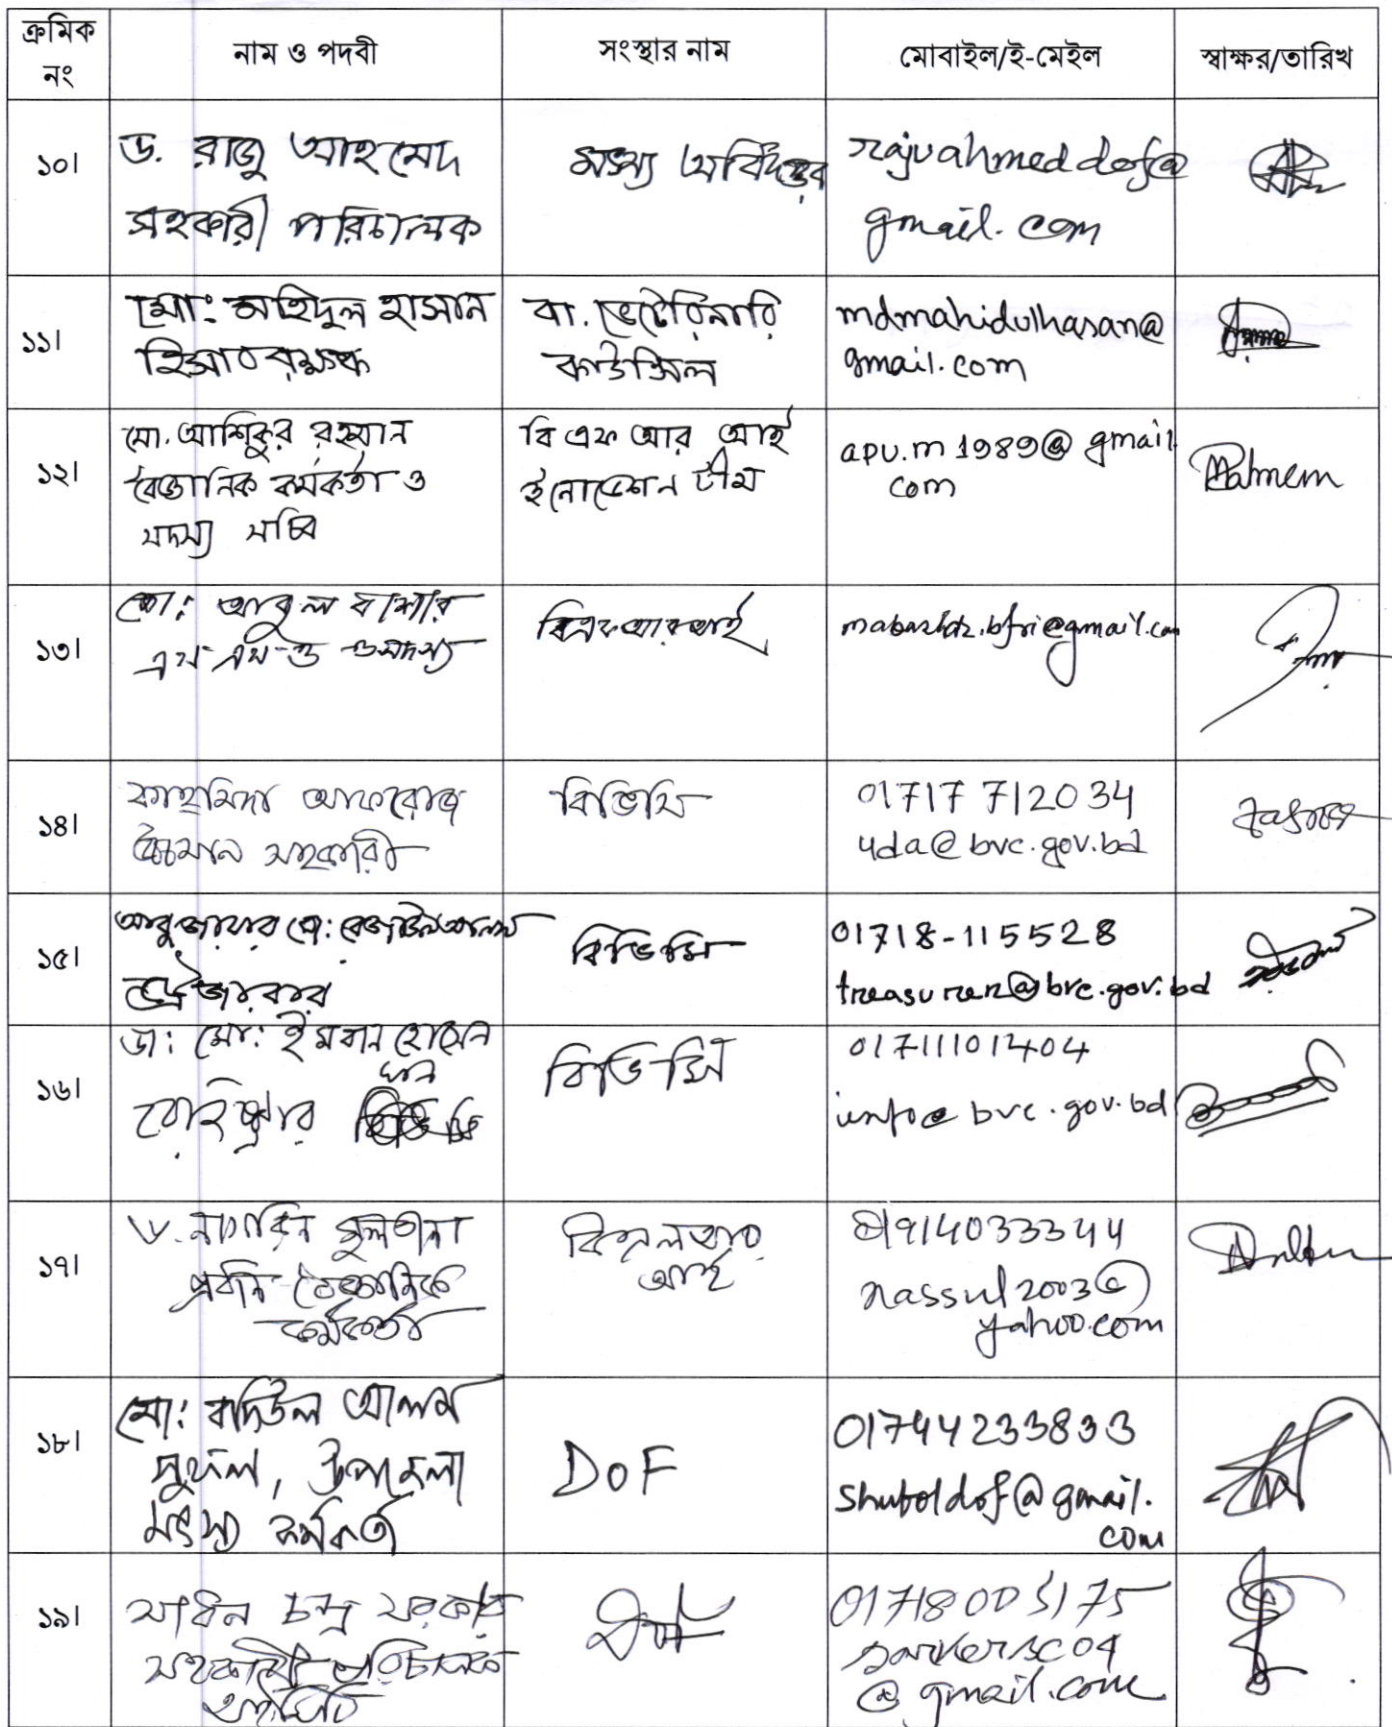 ক্রমিক নং
নাম ও পদবী
সংস্থার নাম
মোবাইল/ই-মেইল
স্বাক্ষর/তারিখ
১০।
ড. রাজু আহমেদ
সহকারী পরিচালক
মৎস্য অধিদপ্তর
rajuahmeddof@
gmail.com
১১।
মো: মহিদুল হাসান
হিসাবরক্ষক
বা. ভেটেরিনারি
কাউন্সিল
mdmahidulhasan@
gmail.com
১২।
মো. আশিকুর রহমান
বৈজ্ঞানিক কর্মকর্তা ও
সদস্য সচিব
বি এফ আর আই
ইনোভেশন টীম
apu.m1989@gmail
com
১৩।
মো: আবুল বাশার
বিএফআরআই
১৪।
ফাহমিদা আফরোজ
উচ্চমান সহকারী
বিভিসি
01717 712034
uda@bvc.gov.bd
১৫।
বিভিসি
01718-115528
treasurer@bvc.gov.bd
১৬।
ডা: মো: ইমরান হোসেন
খান
রেজিস্ট্রার
বিভিসি
01711101404
info@bvc.gov.bd
১৭।
ড. নাসরিন সুলতানা
প্রধান বৈজ্ঞানিক
কর্মকর্তা
বিএলআর
আই
01914033344
nassul2003@
yahoo.com
১৮।
মো: বদিউল আলম
সুফল, উপজেলা
মৎস্য কর্মকর্তা
DoF
01744233833
shufoldof@gmail.
com
১৯।
সাধন চন্দ্র সরকার
সহকারী পরিচালক
01718005175
sarkersc04
@gmail.com